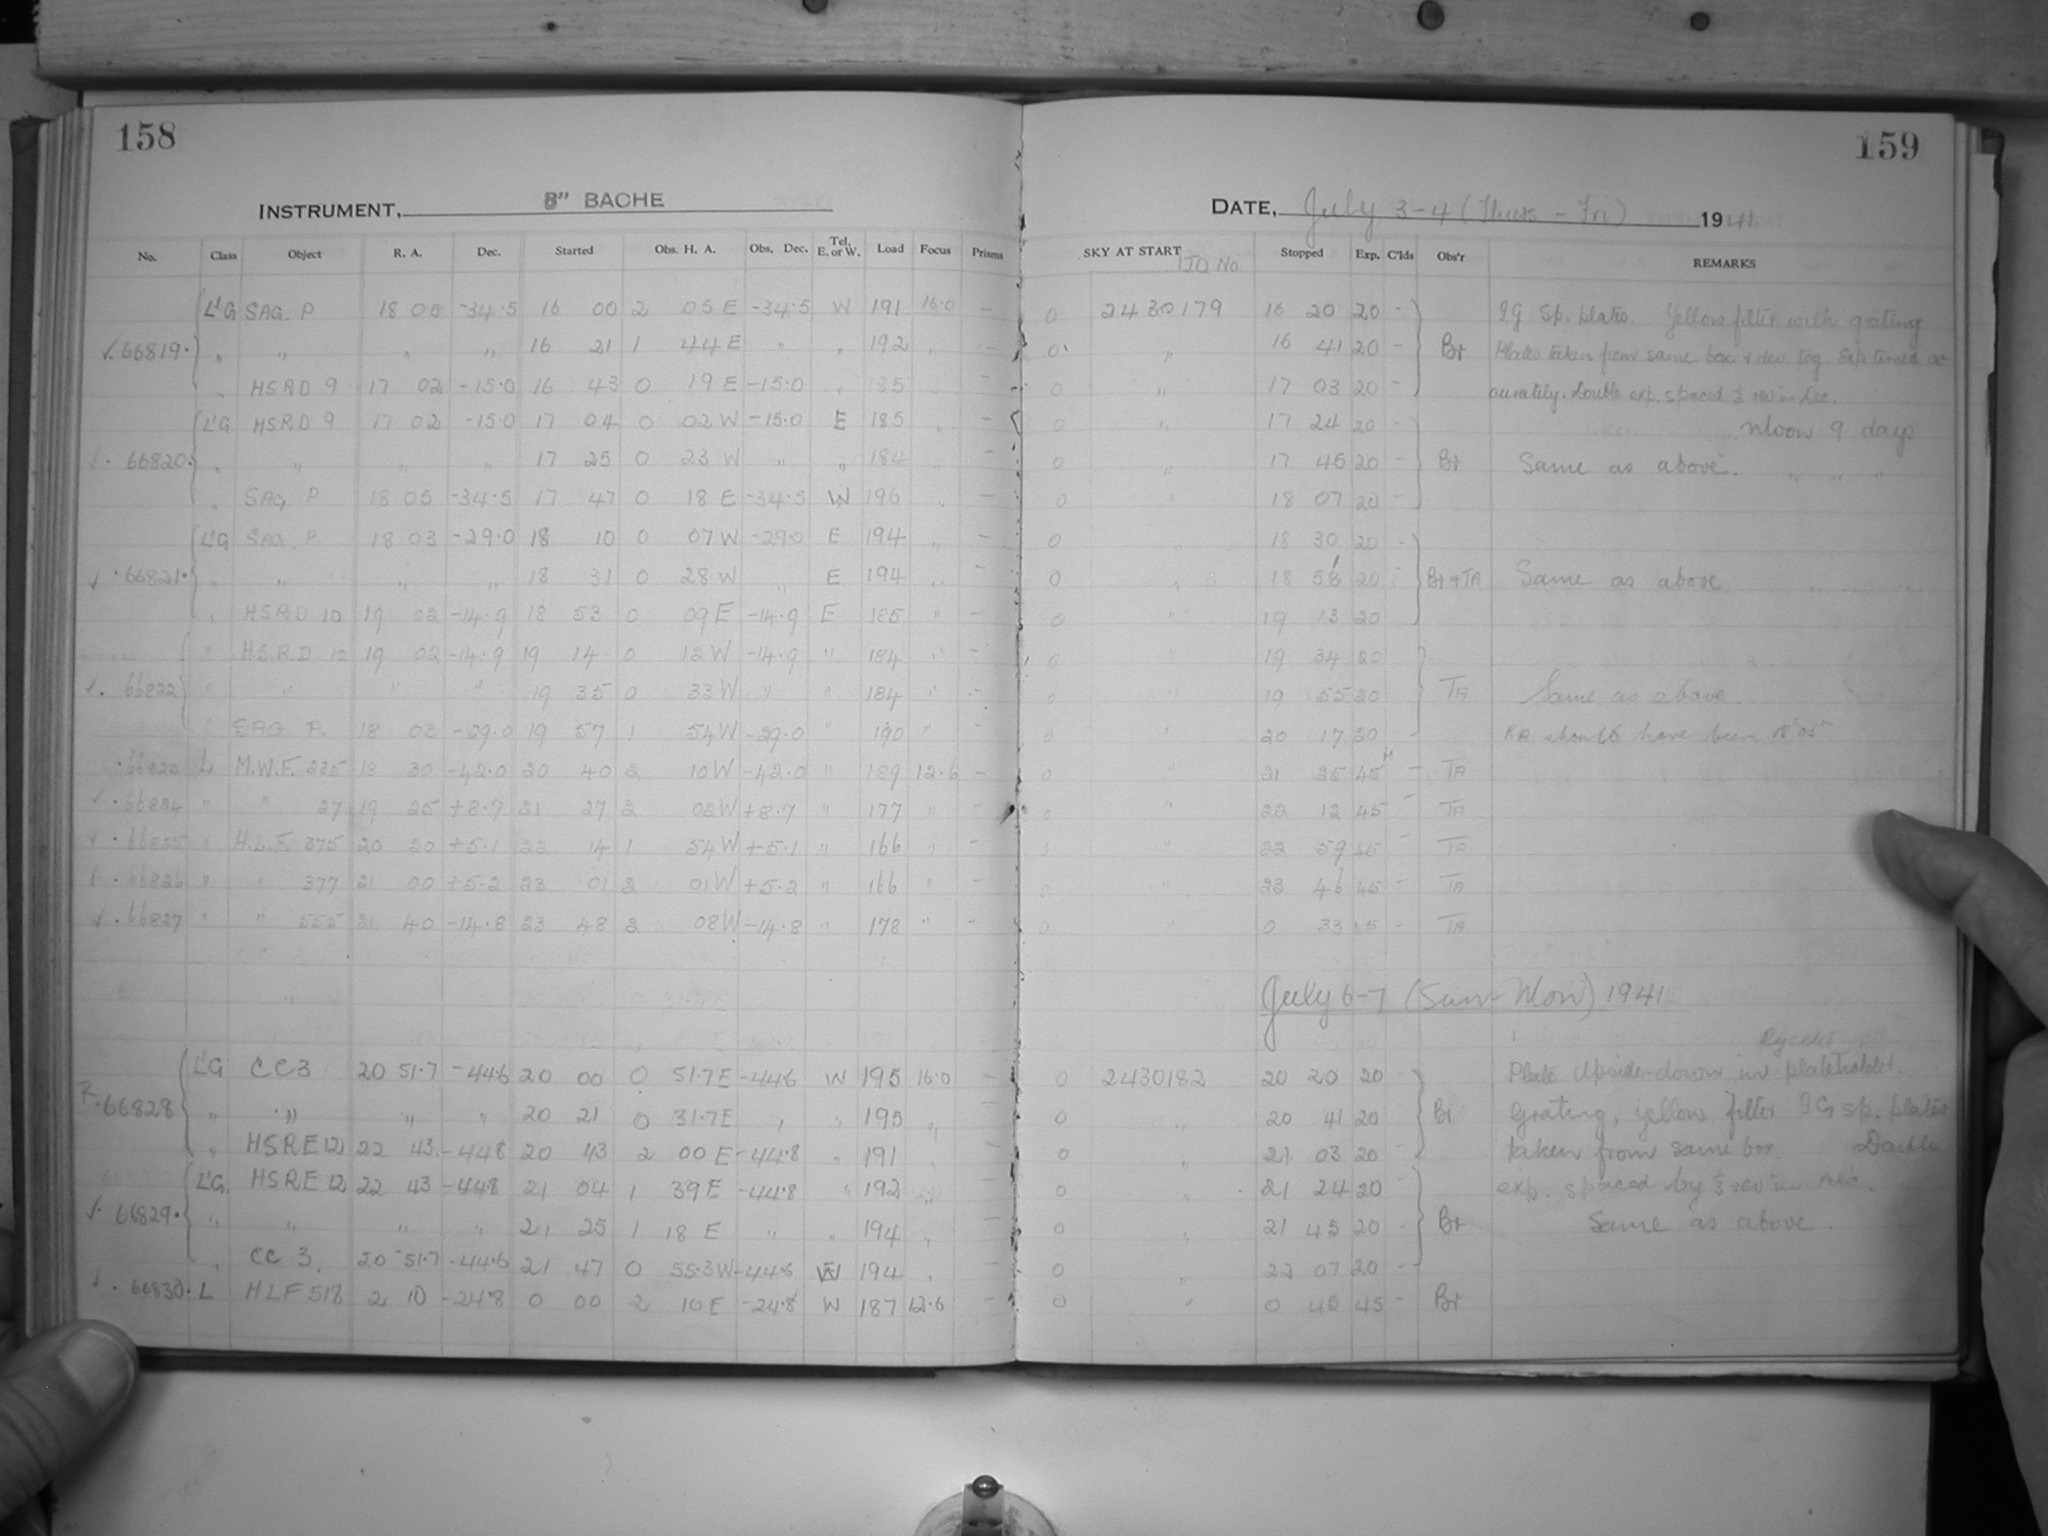 158
159
INSTRUMENT, 8" BACHE
DATE, July 3-4 (Thurs - Fri) 1941
No. Class Object R. A. Dec. Started Obs. H. A. Obs. Dec. Tel. E. or W. Load Focus Prisms SKY AT START JD No. Stopped Exp. C'lds Obs'r REMARKS
L'G SAG. P 18 05 -34.5 16 00 2 05 E -34.5 W 191 16.0 - 0 2430179 16 20 20 - IG Sp. plates. Yellow filter with grating
✓ 66819 " " " " 16 21 1 44 E " " 192 " - 0 " 16 41 20 - Br Plates taken from same box + dev. tog. Exp timed ac
" HSRD 9 17 02 -15.0 16 43 0 19 E -15.0 " 185 - 0 " 17 03 20 - curately. Double exp. spaced ½ rev in Dec.
L'G HSRD 9 17 02 -15.0 17 04 0 02 W -15.0 E 185 " - 0 " 17 24 20 - Moon 9 days
✓ 66820 " " " " 17 25 0 23 W " " 184 - 0 " 17 45 20 - Br Same as above. " " "
" SAG P 18 05 -34.5 17 47 0 18 E -34.5 W 196 " - 0 18 07 20 -
L'G SAG. P. 18 03 -29.0 18 10 0 07 W -29.0 E 194 " - 0 " 18 30 20 -
✓ 66821 " " " " 18 31 0 28 W E 194 " - 0 " 18 51 20 - Br + TA Same as above.
" HSRD 10 19 02 -14.9 18 53 0 09 E -14.9 E 185 " - 0 " 19 13 20
" H.S.R.D 10 19 02 -14.9 19 14 0 12 W -14.9 " 184 " - 0 " 19 34 20
✓ 66822 " " " " 19 35 0 33 W " " 184 " - 0 " 19 55 20 TA Same as above
" SAG P. 18 03 -29.0 19 57 1 54 W -29.0 " 190 " - 0 " 20 17 20 RA should have been 18h 05m
66823 L M.W.F. 235 18 30 -42.0 20 40 2 10 W -42.0 " 189 12.6 - 0 " 21 25 45M - TA
✓ 66824 " " 27 19 25 +8.7 21 27 2 02 W +8.7 " 177 " - 0 " 22 12 45 - TA
✓ 66825 " H.L.F. 375 20 20 +5.1 22 14 1 54 W +5.1 " 166 " - " 22 59 45 - TA
✓ 66826 " " 377 21 00 +5.2 23 01 2 01 W +5.2 " 166 " - 0 " 23 46 45 - TA
✓ 66827 " " 555 21 40 -14.8 23 48 2 08 W -14.8 " 178 " - 0 " 0 33 45 - TA
July 6-7 (Sun - Mon) 1941
L'G CC 3 20 51.7 -44.6 20 00 0 51.7 E -44.6 W 195 16.0 - 0 2430182 20 20 20 - Plate Upside-down in plateholder.
66828 " " " " 20 21 0 31.7 E " " 195 " 0 " 20 41 20 - Br Grating, yellow filter IG sp. plates
" HSRE 12 22 43 -44.8 20 43 2 00 E -44.8 " 191 " - 0 " 21 03 20 - taken from same box. Double
L'G. HSRE 12 22 43 -44.8 21 04 1 39 E -44.8 " 192 " - 0 " 21 24 20 exp. spaced by ½ rev in Dec.
✓ 66829 " " " " 21 25 1 18 E " " 194 " - 0 " 21 45 20 - Br Same as above.
" CC 3. 20 51.7 -44.6 21 47 0 55.3 W -44.6 194 " - 0 " 22 07 20 -
✓ 66830 L HLF 518 2 10 -24.8 0 00 2 10 E -24.8 W 187 12.6 - 0 " 0 45 45 - Br